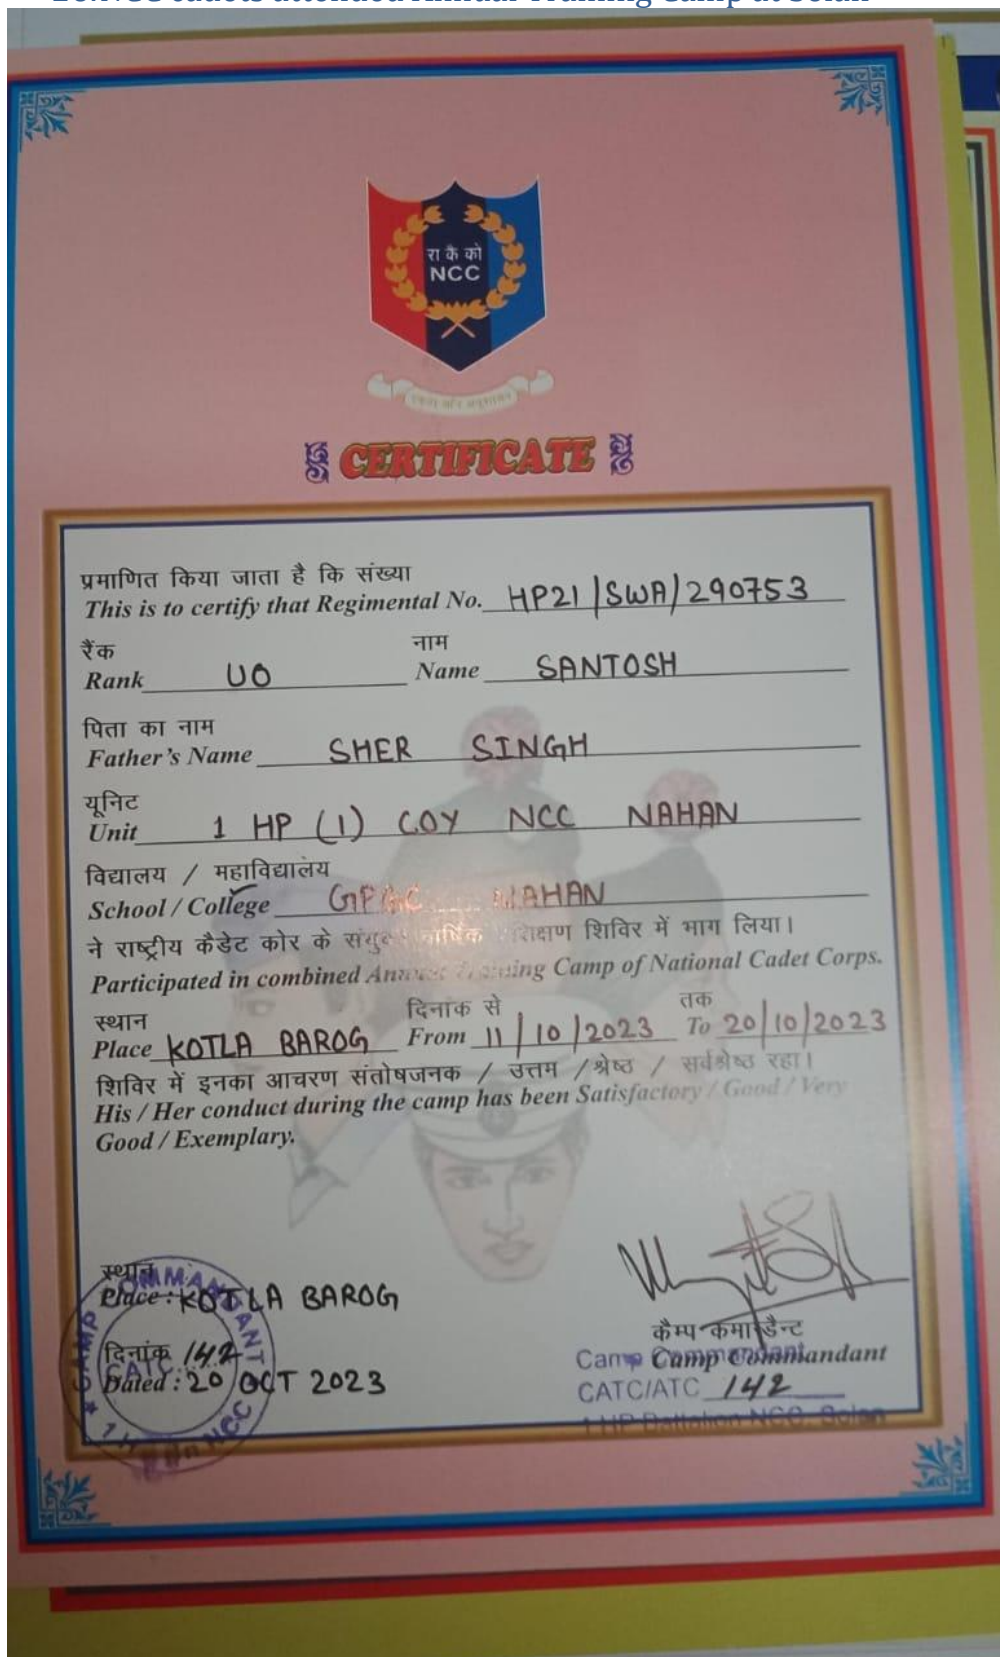 NCC cadets attended Annual Training Camp at Solan
रा कै को
NCC
एकता और अनुशासन
CERTIFICATE
प्रमाणित किया जाता है कि संख्या
This is to certify that Regimental No. HP21/SWA/290753
रैंक नाम
Rank UO Name SANTOSH
पिता का नाम
Father's Name SHER SINGH
यूनिट
Unit 1 HP (1) COY NCC NAHAN
विद्यालय / महाविद्यालय
School / College GPGC NAHAN
ने राष्ट्रीय कैडेट कोर के संयुक्त वार्षिक प्रशिक्षण शिविर में भाग लिया।
Participated in combined Annual Training Camp of National Cadet Corps.
स्थान दिनांक से तक
Place KOTLA BAROG From 11/10/2023 To 20/10/2023
शिविर में इनका आचरण संतोषजनक / उत्तम / श्रेष्ठ / सर्वश्रेष्ठ रहा।
His / Her conduct during the camp has been Satisfactory / Good / Very
Good / Exemplary.
स्थान
Place : KOTLA BAROG
दिनांक 142
Dated : 20 OCT 2023
CAMP COMMANDANT
CATC
NCC
कैम्प कमान्डैन्ट
Camp Commandant
Camp Commandant
CATC/ATC 142
1 HP Battalion NCC, Solan